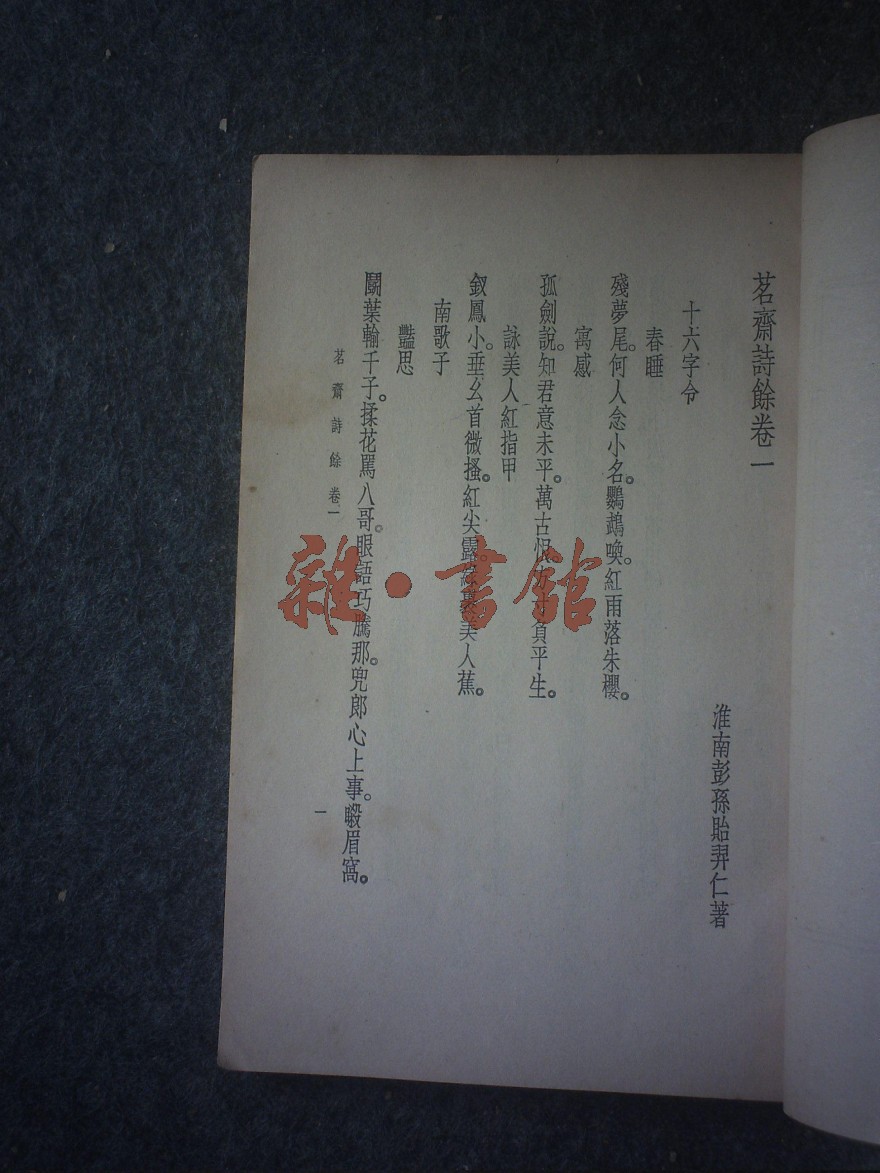 茗齋詩餘卷一
淮南彭孫貽羿仁著
十六字令
春睡
殘夢尾。何人念小名。鸚鵡喚。紅雨落朱櫻。
寓感
孤劍說。知君意未平。萬古恨。負平生。
詠美人紅指甲
釵鳳小。垂玄首微搔。紅尖露。裹美人蕉。
南歌子
豔思
鬭葉輸千子。揉花罵八哥。眼語巧騰那。兜郎心上事。眉窩。
茗齋詩餘 卷一
一
雜·書館